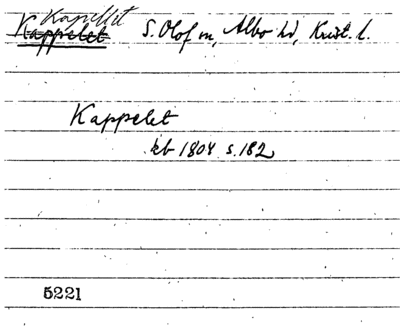 Kapellet
Kappelet S. Olof sn, Albo hd, Krist. l.
Kappelet
kb 1804 s. 182
5221